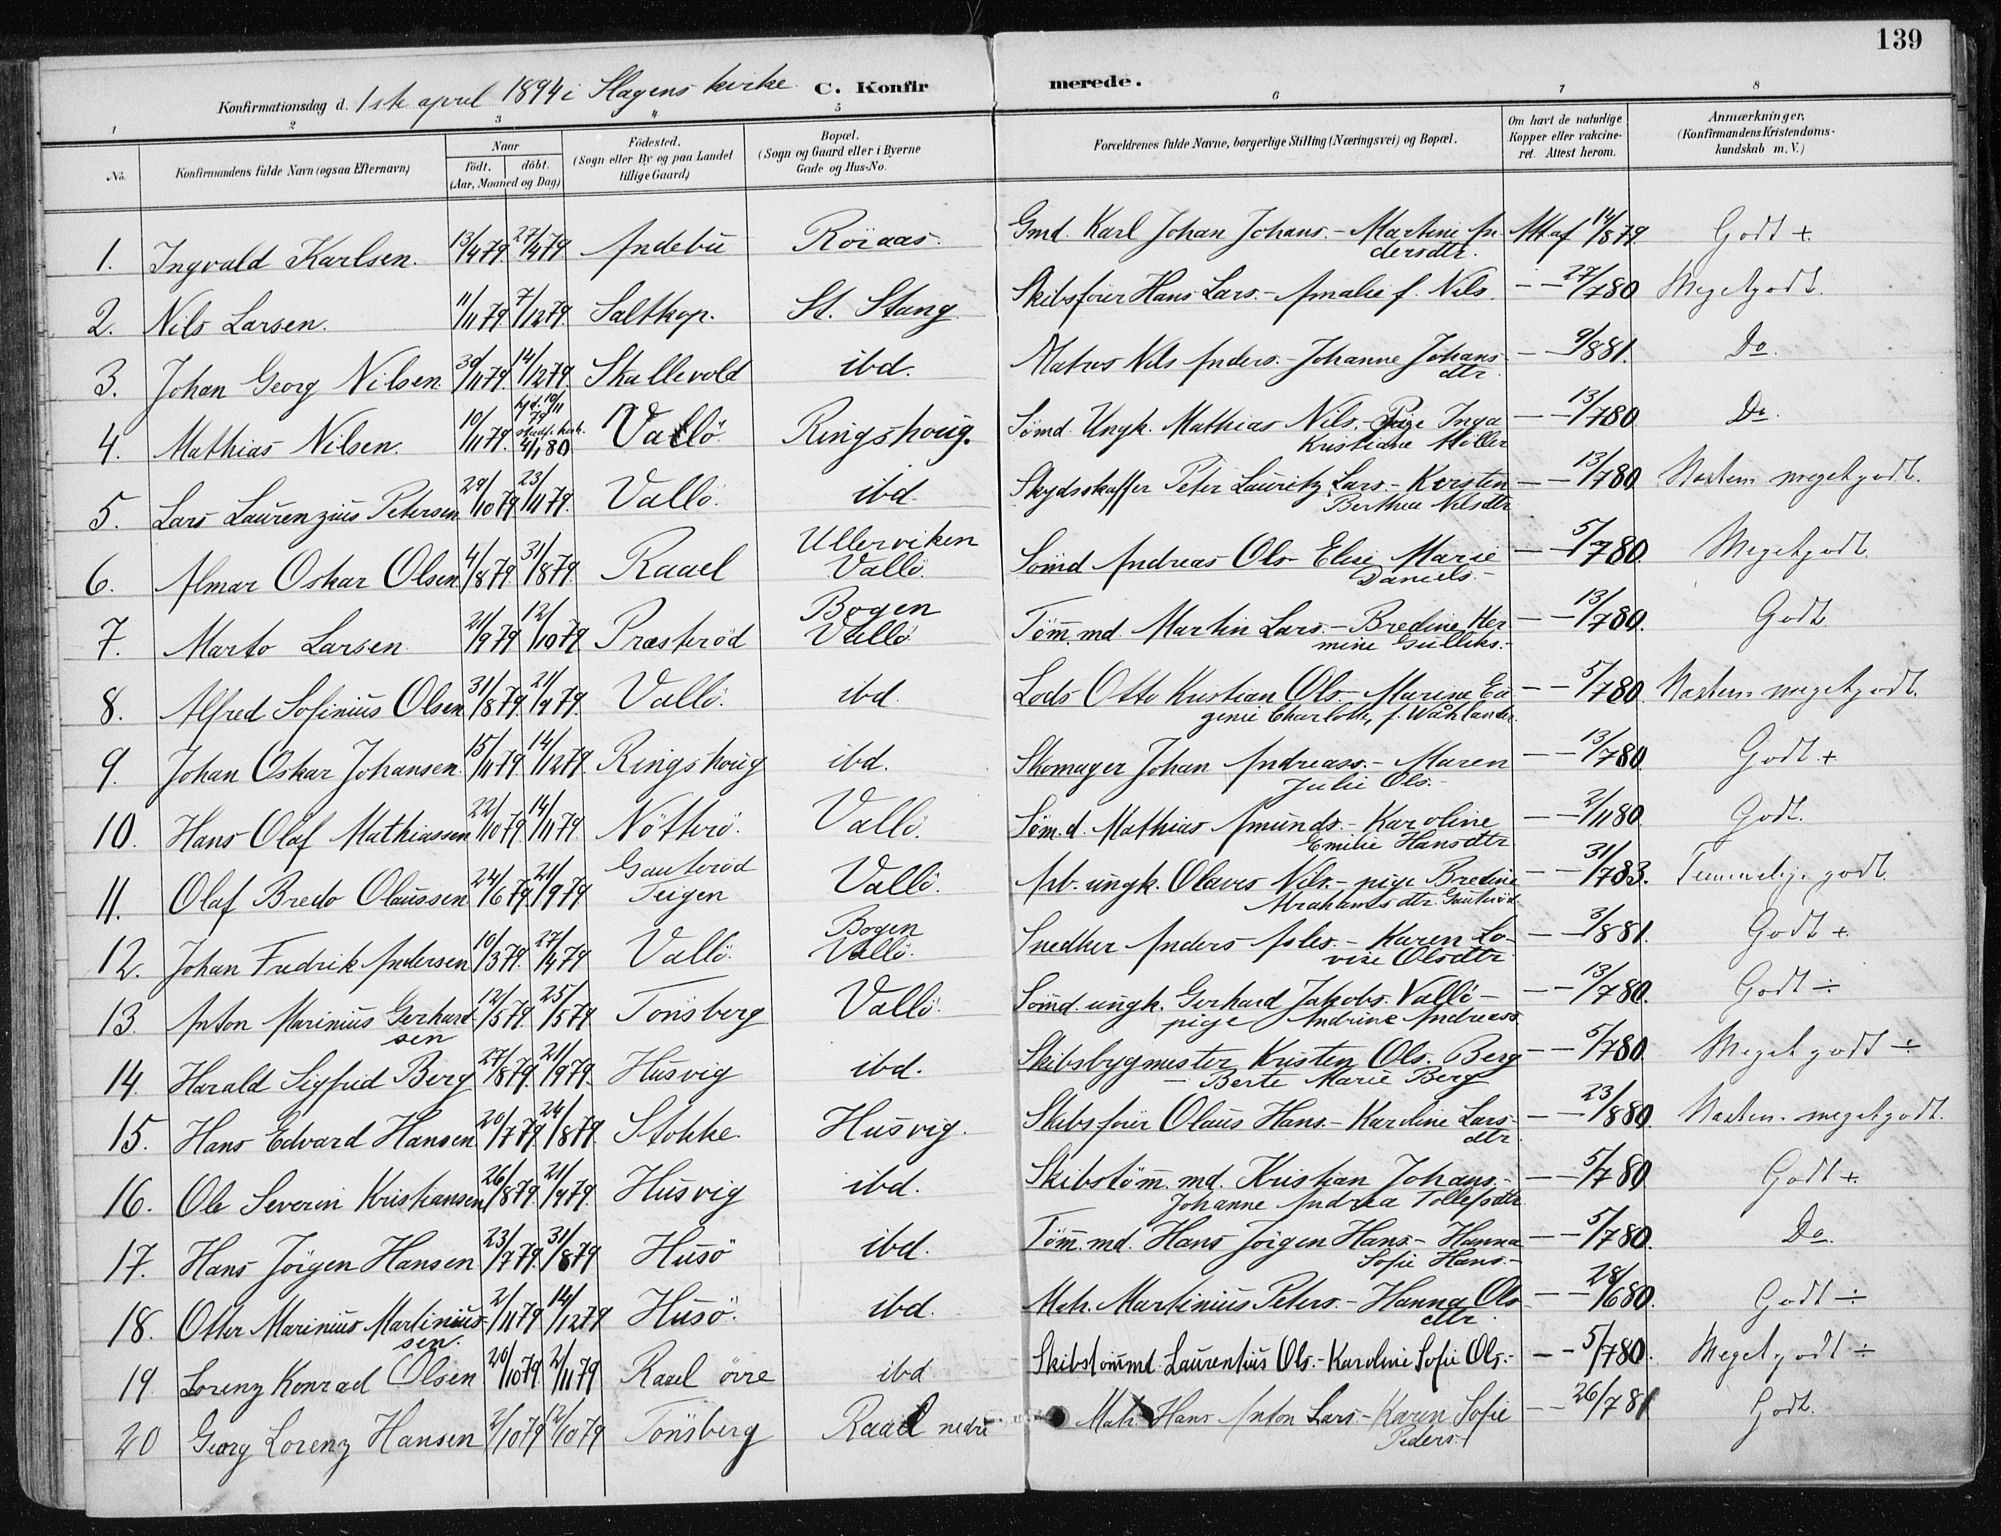 139
Konfirmationsdag d. 1ste april 1894 i Slagens kirke C. Konfir merede.
1 2 3 4 5 6 7 8
No. Konfirmandens fulde Navn (ogsaa Efternavn) Naar Födt. döbt. (Aar, Maaned og Dag) Födested. (Sogn eller By og paa Landet tillige Gaard) Bopæl. (Sogn og Gaard eller i Byerne Gade og Hus-No. Forældrenes fulde Navne, borgerlige Stilling (Næringsvei) og Bopæl. Om havt de naturlige Kopper eller vakcineret. Attest herom. Anmærkninger, (Konfirmandens Kristendomskundskab m. V.)
1. Ingvald Karlsen. 13/4 79 27/4 79 Andebu Röiaas. Gmd. Karl Johan Johans. - Martine Andersdtr. Att af 14/8 79. Godt +.
2. Nils Larsen. 11/11 79 7/12 79. Saltkop. St. Stang Skibsförer Hans Lars. - Amalie f. Nils. — — 27/7 80 Megetgodt.
3. Johan Georg Nilsen. 30/11 79. 14/12 79. Skallevold ibd. Matros Nils Anders. - Johanne Johansdtr. — — 9/8 81. Do.
4. Mathias Nilsen. 10/11 79. hjd. 10/11 79 4/1 80 Vallö Ringshoug. Sömd. Ungk. Mathias Nils. - Pige Inga Kristiane Möller — — 13/7 80. Do
5. Lars Laurenzius Petersen 29/10 79 23/11 79. Vallö. ibd. Skydsskaffer Peter Lauritz Lars. - Kirsten Berthea Nilsdtr — — 13/7 80 Næsten megetgodt.
6. Almar Oskar Olsen 4/8 79 31/8 79 Raael Ullerviken Vallö. Sömd Andreas Ols - Elise Marie Daniels. - — — 5/7 80. Megetgodt.
7. Marto Larsen. 21/9 79 12/10 79 Præsterød Bogen Vallö Tømmd. Martin Lars. - Bredine Hermine Gulliks. - — — 13/7 80. Godt.
8. Alfred Sofinius Olsen 31/8 79 21/9 79. Vallö. ibd. Lods Otto Kristian Ols. - Marine Eugenie Charlotte, f. Wåhlander. — — 5/7 80. Næsten megetgodt.
9. Johan Oskar Johansen. 15/11 79. 14/12 79. Ringshoug ibd. Skomager Johan Andreass. - Maren Julie Ols. - — — 13/7 80. Godt +
10. Hans Olaf Mathiassen 22/10 79 14/11 79. Nötterö. Vallö. Söm.d. Mathias Amunds. - Karoline Emilie Hansdtr — — 2/11 80 Godt.
11. Olaf Bredo Olaussen 24/6 79 21/9 79 Gauterød Teigen Vallö. Arb. ungk. Olaves Nils. - pige Bredine Abrahamsdtr. Gauterød — — 31/7 83. Temmelig godt.
12. Johan Fredrik Andersen 10/3 79. 27/4 79 Vallö. Bogen Vallö. Snedker Anders Asles. - Karen Lovise Olsdtr — — 3/8 81. Godt +
13. Anton Marinius Gerhardsen 12/5 79. 25/5 79 Tönsberg Vallö. Sömd. ungk. Gerhard Jakobs. Vallö - pige Andrine Andreass — — 13/7 80. Godt ÷
14. Harald Sigfrid Berg 27/8 79. 21/9 79. Husvig ibd. Skibsbygmester Kristen Ols. Berg - Berte Marie Berg — — 5/7 80. Meget godt ÷
15. Hans Edvard Hansen 20/7 79. 24/8 79. Stokke. Husvig. Skibsförer Olaus Hans. - Karoline Larsdtr. — — 23/8 80. Næsten megetgodt.
16. Ole Severin Kristiansen 26/8 79. 21/9 79. Husvig ibd. Skibstøm.md. Kristian Johans. - Johanne Andrea Tollefsdtr. — — 5/7 80. Godt +.
17. Hans Jörgen Hansen 23/7 79. 31/8 79 Husö ibd. Tømmd. Hans Jörgen Hans - Hanna Sofie Hans. - — — 5/7 80. Do.
18. Otter Marinius Martiniussen. 2/11 79 14/12 79 Husö. ibd. Matr. Martinius Peters. - Hanna Olsdtr. — — 28/6 80. Godt ÷
19. Lorenz Konrad Olsen 20/10 79 2/11 79 Raael övre ibd Skibstömmd. Laurentius Ols. - Karoline Sofie Ols. - — — 5/7 80. Meget godt ÷
20 Georg Lorenz Hansen 2/10 79 12/10 79 Tönsberg Raael nedre Matr. Hans Anton Lars - Karen Sofie Peders. — — 26/7 81 Godt.